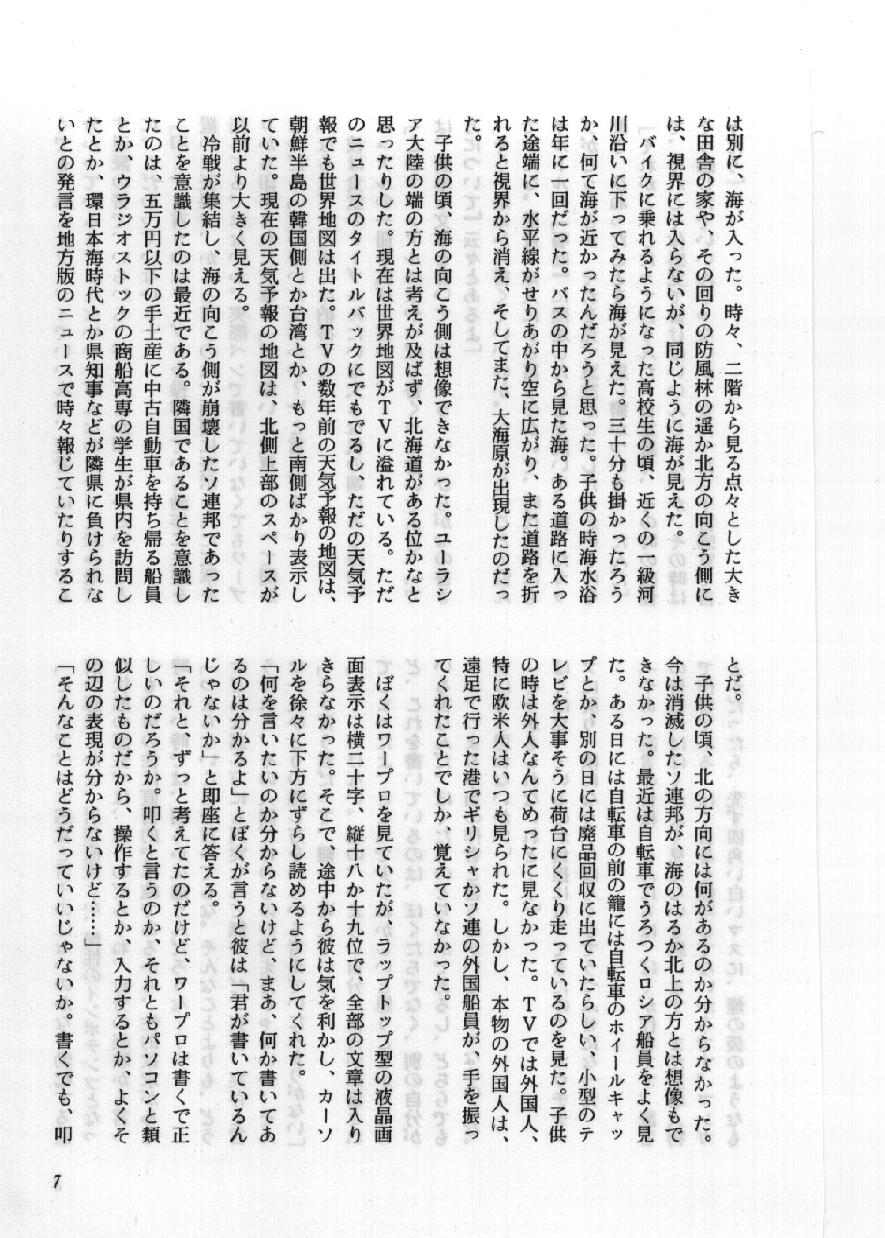 は別に、海が入った。時々、二階から見る点々とした大き
な田舎の家や、その回りの防風林の遥か北方の向こう側に
は、視界には入らないが、同じように海が見えた。
バイクに乗れるようになった高校生の頃、近くの一級河
川沿いに下ってみたら海が見えた。三十分も掛かったろう
か、何て海が近かったんだろうと思った。子供の時海水浴
は年に一回だった。バスの中から見た海。ある道路に入っ
た途端に、水平線がせりあがり空に広がり、また道路を折
れると視界から消え、そしてまた、大海原が出現したのだっ
た。
子供の頃、海の向こう側は想像できなかった。ユーラシ
ア大陸の端の方とは考えが及ばず、北海道がある位かなと
思ったりした。現在は世界地図がTVに溢れている。ただ
のニュースのタイトルバックにでもでるしただの天気予
報でも世界地図は出た。TVの数年前の天気予報の地図は、
朝鮮半島の韓国側とか台湾とか、もっと南側ばかり表示し
ていた。現在の天気予報の地図は、北側上部のスペースが
以前より大きく見える。
冷戦が集結しか海の向こう側が崩壊したソ連邦であった
ことを意識したのは最近である。隣国であることを意識し
たのは、五万円以下の手土産に中古自動車を持ち帰る船員
とか、ウラジオストックの商船高専の学生が県内を訪問し
たとか、環日本海時代とか県知事などが隣県に負けられな
いとの発言を地方版のニュースで時々報じていたりするこ
とだ。
子供の頃、北の方向には何があるのか分からなかった。
今は消滅したソ連邦が、海のはるか北上の方とは想像もで
きなかった。最近は自転車でうろつくロシア船員をよく見
た。ある日には自転車の前の籠には自転車のホイールキャッ
プとか、別の日には廃品回収に出ていたらしい、小型のテ
レビを大事そうに荷台にくくり走っているのを見た。子供
の時は外人なんてめったに見なかった。TVでは外国人、
特に欧米人はいつも見られた。しかし、本物の外国人は、
遠足で行った港でギリシャかソ連の外国船員が、手を振っ
てくれたことでしか、覚えていなかった。
ぼくはワープロを見ていたが、ラップトップ型の液晶画
面表示は横二十字、縦十八か十九位で、全部の文章は入り
きらなかった。そこで、途中から彼は気を利かし、カーソ
ルを徐々に下方にずらし読めるようにしてくれた。
「何を言いたいのか分からないけど、まあ、何か書いてあ
るのは分かるよ」とぼくが言うと彼は「君が書いているん
じゃないか」と即座に答える。
「それと、ずっと考えてたのだけど、ワープロは書くで正
しいのだろうか。叩くと言うのか、それともパソコンと類
似したものだから、操作するとか、入力するとか、よくそ
の辺の表現が分からないけど……」
「そんなことはどうだっていいじゃないか。書くでも、叩
7